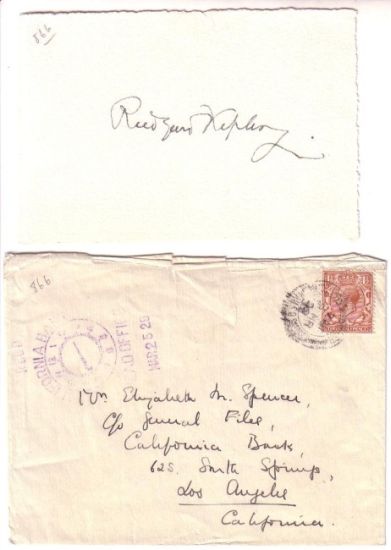 866
Rudyard Kipling
866
MAR 25 26
Mrs Elizabeth M. Spencer,
c/o General Files,
California Bank,
625. South Springs,
Los Angeles
California.